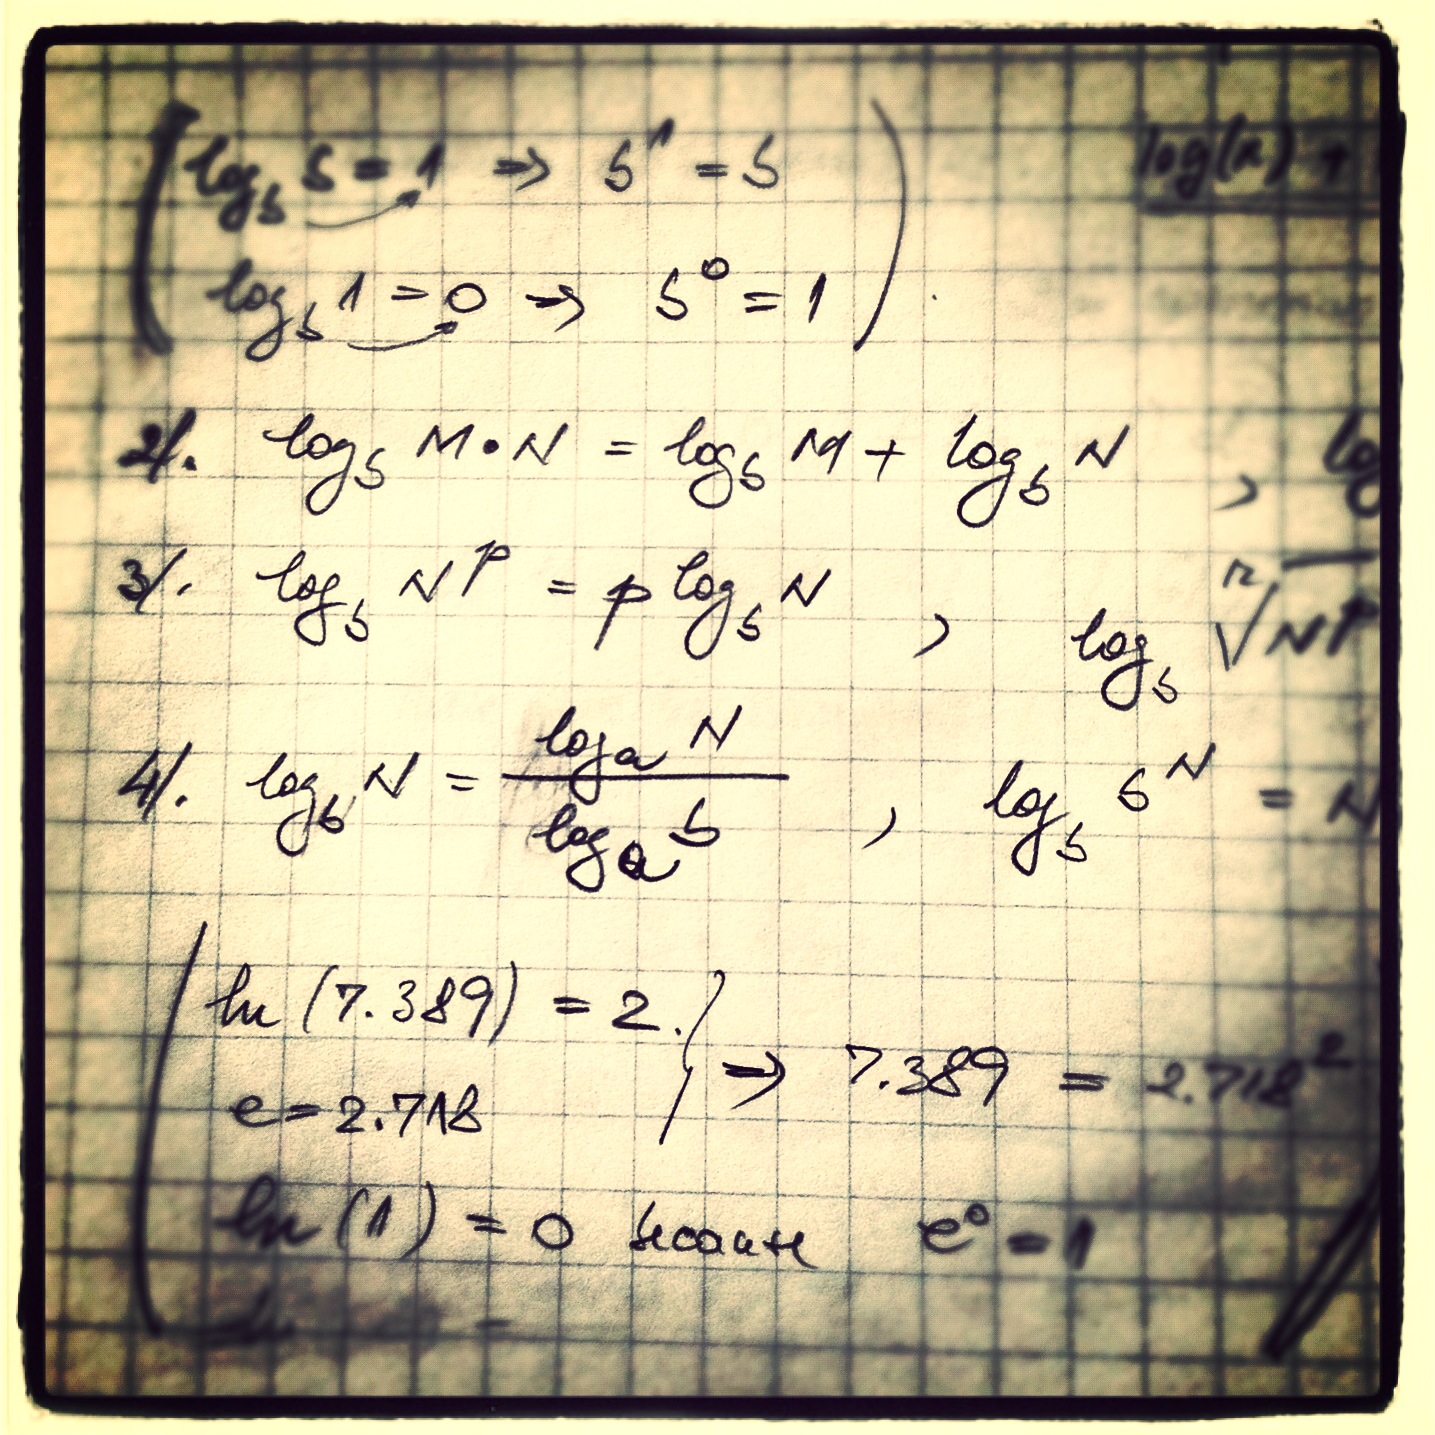 log_b b = 1 ⇒ b^1 = b
log(x) +
log_b 1 = 0 ⇒ b^0 = 1
2/. log_b M • N = log_b M + log_b N , log
3/. log_b N^p = p log_b N , log_b ⁿ√N^p
4/. log_b N = log_a N / log_a b , log_b b^N = N
ln (7.389) = 2.
e = 2.718
⇒ 7.389 = 2.718^2
ln (1) = 0 because e^0 = 1